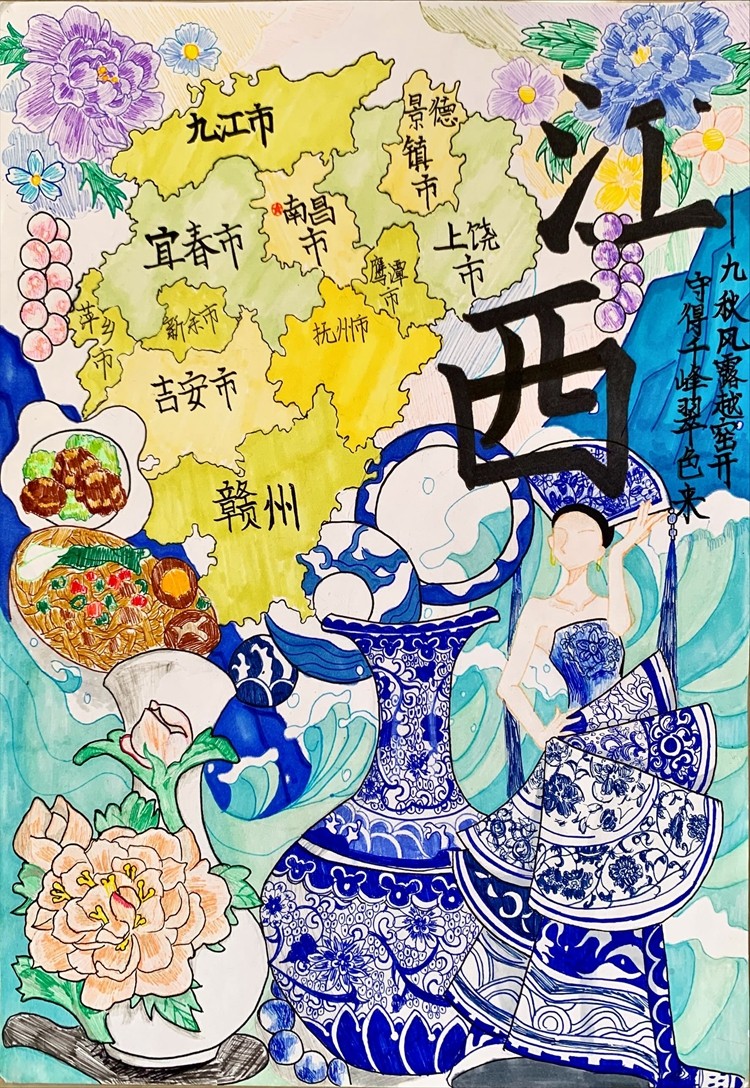 江西
——九秋风露越窑开
夺得千峰翠色来
九江市
景德镇市
宜春市
南昌市
上饶市
鹰潭市
萍乡市
新余市
抚州市
吉安市
赣州